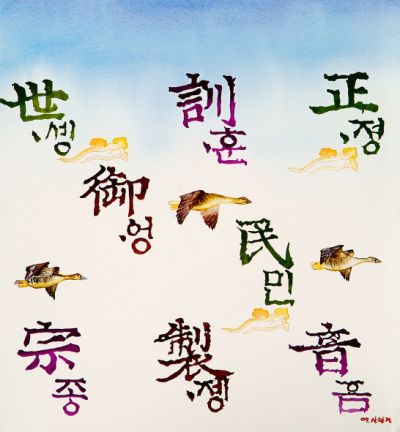 世솅
宗종
御엉
製졩
訓훈
民민
正졍
音음